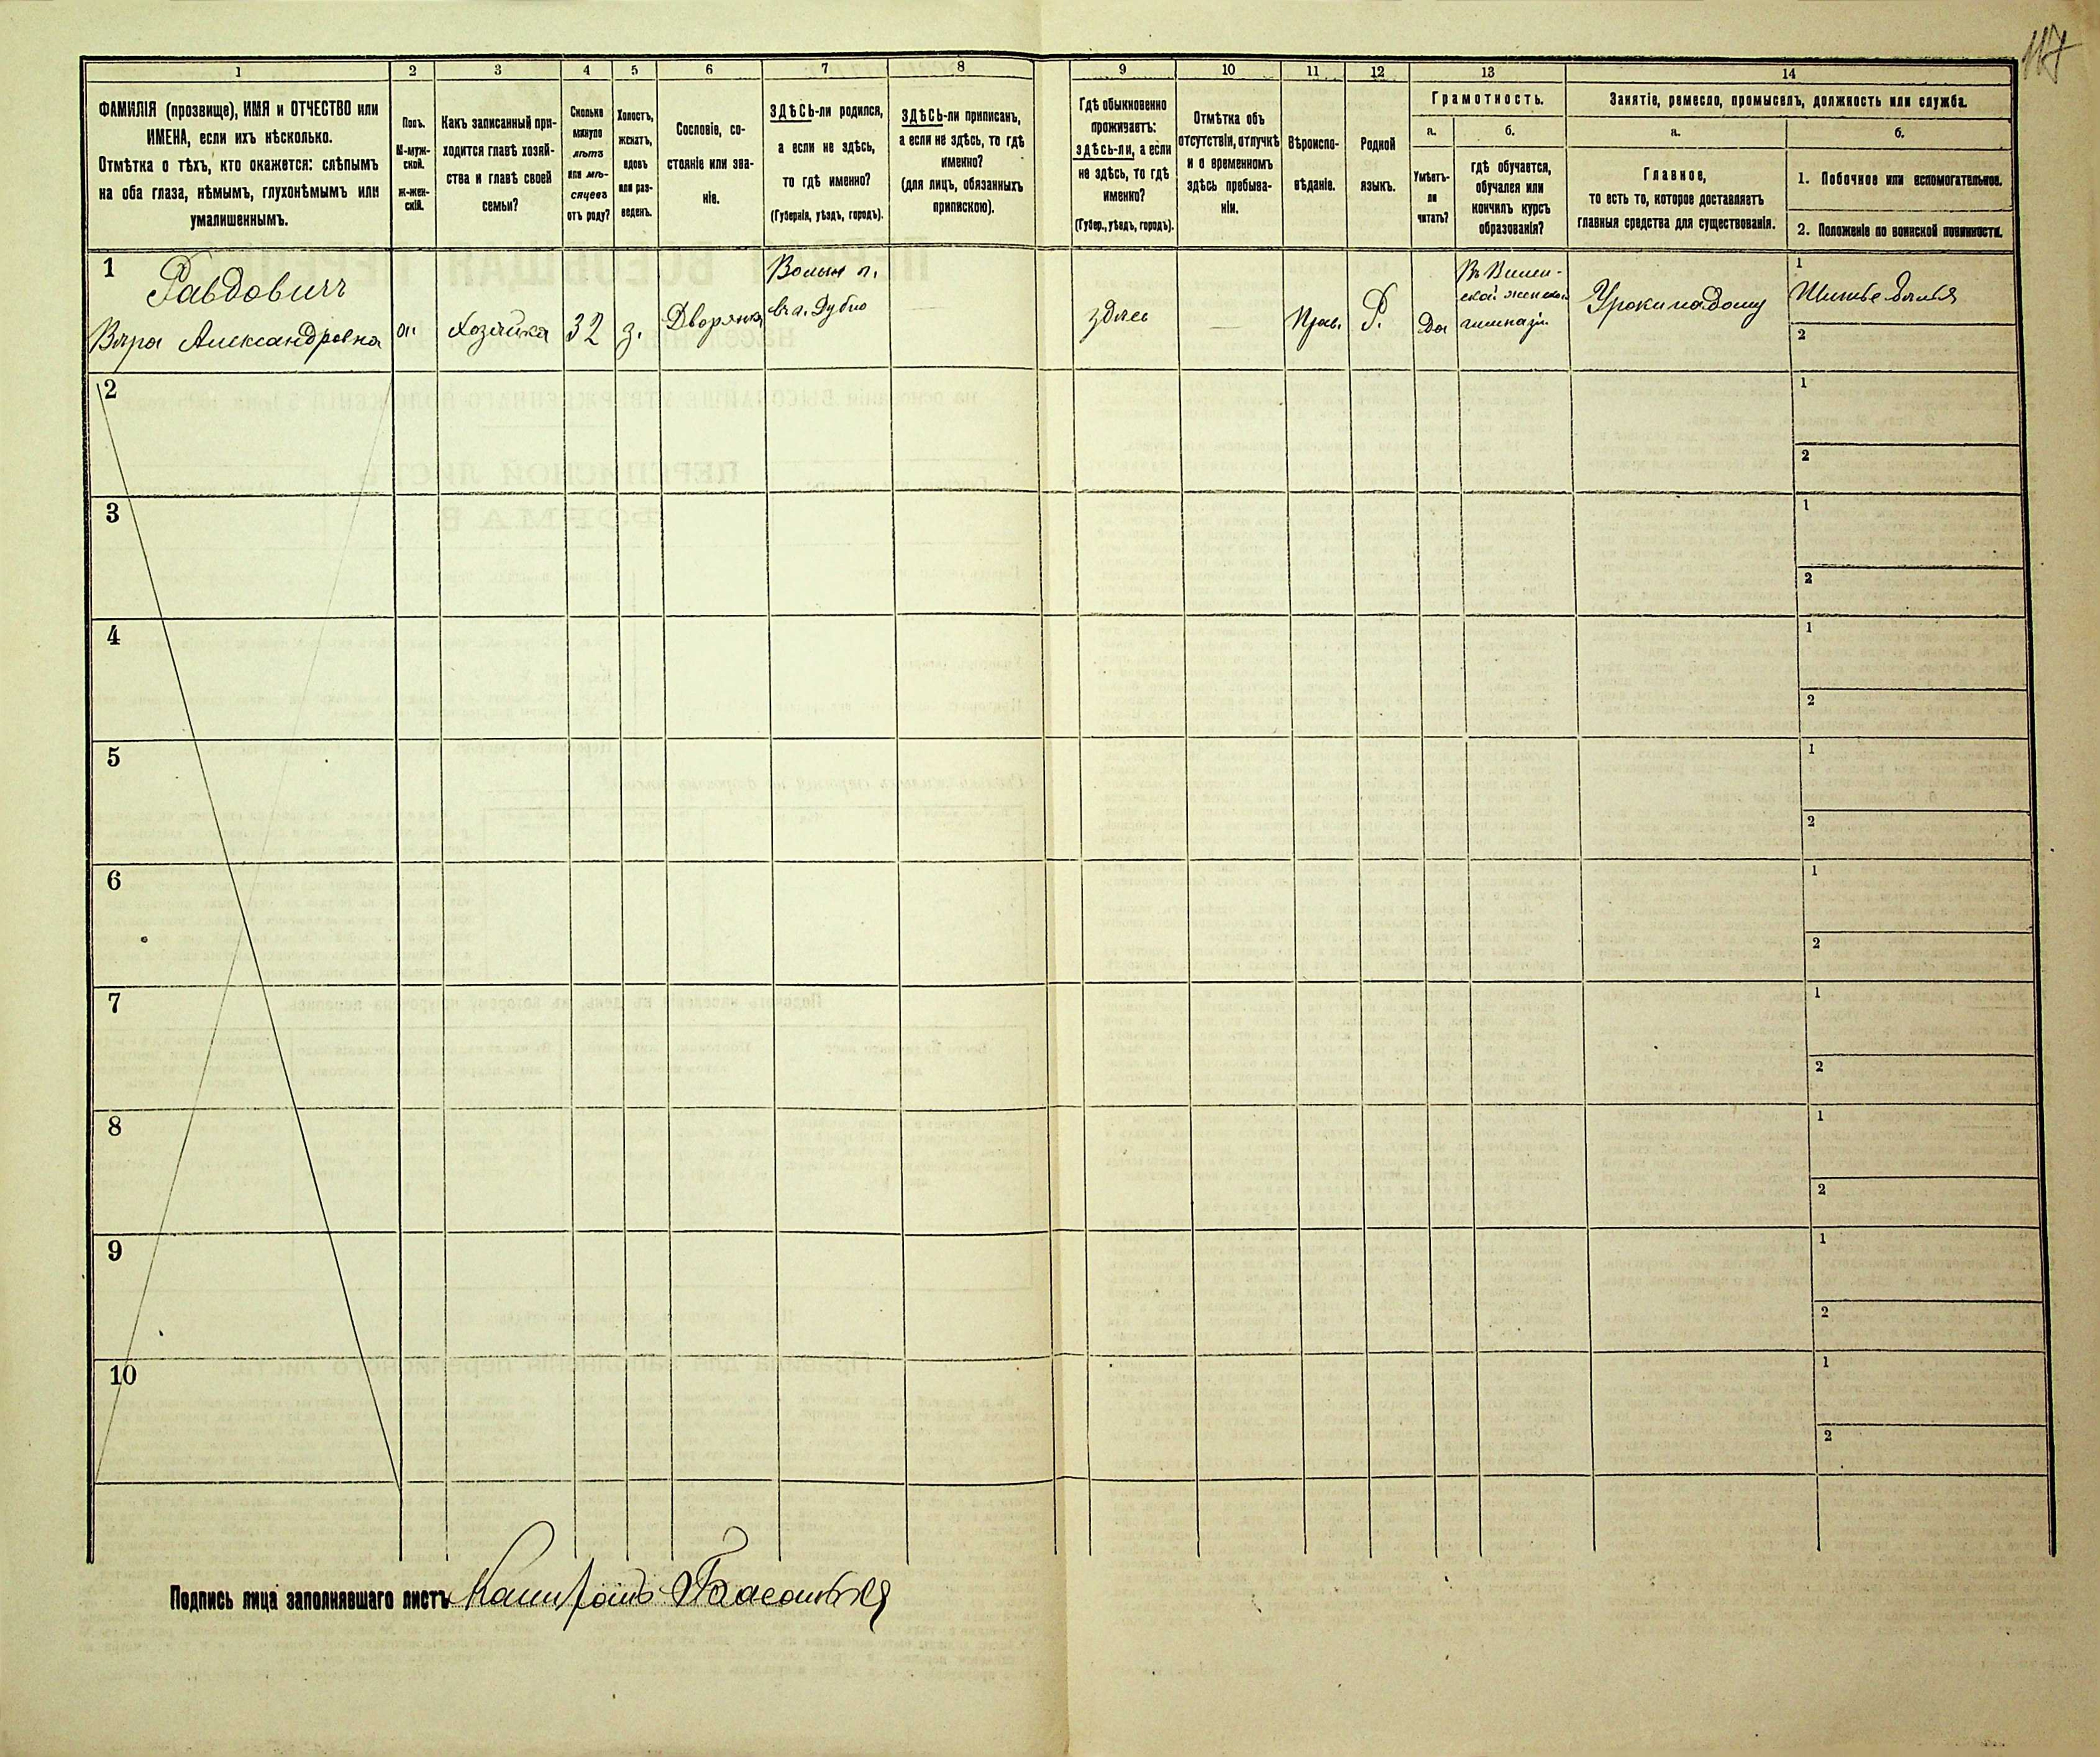 117
1 2 3 4 5 6 7 8 9 10 11 12 13 14
ФАМИЛІЯ (прозвище), ИМЯ и ОТЧЕСТВО или
ИМЕНА, если ихъ нѣсколько.
Отмѣтка о тѣхъ, кто окажется: слѣпымъ
на оба глаза, нѣмымъ, глухонѣмымъ или
умалишеннымъ.
Полъ.
М-муж-
ской.
ж-жен-
скій.
Какъ записанный при-
ходится главѣ хозяй-
ства и главѣ своей
семьи?
Сколько
минуло
лѣтъ
или мѣ-
сяцевъ
отъ роду?
Холостъ,
женатъ,
вдовъ
или раз-
веденъ.
Сословіе, со-
стояніе или зва-
ніе.
ЗДѢСЬ-ли родился,
а если не здѣсь,
то гдѣ именно?
(Губернія, уѣздъ, городъ).
ЗДѢСЬ-ли приписанъ,
а если не здѣсь, то гдѣ
именно?
(для лицъ, обязанныхъ
припискою).
Гдѣ обыкновенно
проживаетъ:
здѣсь-ли, а если
не здѣсь, то гдѣ
именно?
(Губер., уѣздъ, городъ).
Отмѣтка объ
отсутствіи, отлучкѣ
и о временномъ
здѣсь пребыва-
ніи.
Вѣроиспо-
вѣданіе.
Родной
языкъ.
Грамотность.
а.
Умѣетъ-
ли
читать?
б.
гдѣ обучается,
обучался или
кончилъ курсъ
образованія?
Занятіе, ремесло, промыселъ, должность или служба.
а.
Главное,
то есть то, которое доставляетъ
главныя средства для существованія.
б.
1. Побочное или вспомогательное.
2. Положеніе по воинской повинности.
1
Равдовичъ
Вѣра Александровна
хозяйка
32
Дворянка
Волын г.
Дубно
здѣсь
Прав.
Р.
Да
Въ Вилен-
ской женской
гимназіи
Уроки на дому
1 Шитье бѣлья
2
2
1
2
3
1
2
4
1
2
5
1
2
6
1
2
7
1
2
8
1
2
9
1
2
10
1
2
Подпись лица заполнявшаго листъ